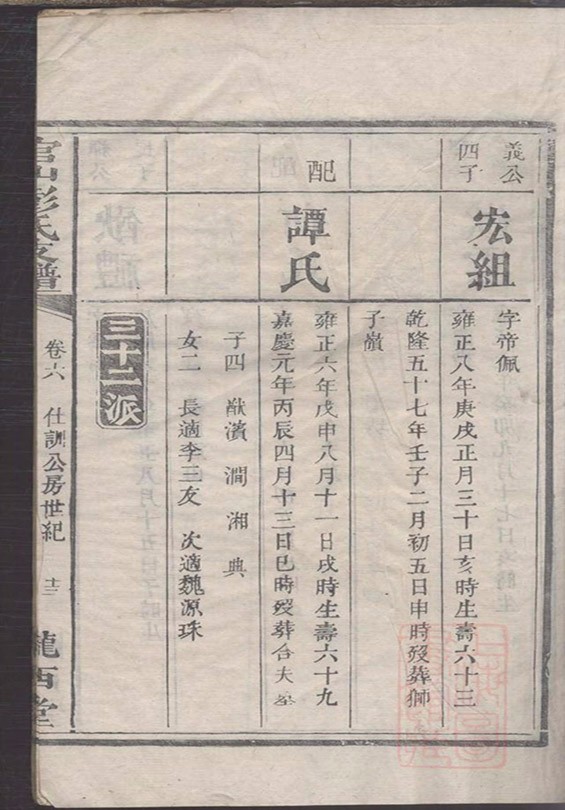 義公
四子
宏組
字帝佩
雍正八年庚戌正月三十日亥時生壽六十三
乾隆五十七年壬子二月初五日申時歿葬獅
子嶺
配
譚氏
雍正六年戊申八月十一日戌時生壽六十九
嘉慶元年丙辰四月十三日巳時歿葬合夫塋
子四 猷濱 澗 湘 典
女二 長適李三友 次適魏源珠
三十二派
官山彭氏支譜
卷六 仕訓公房世紀
隴西堂